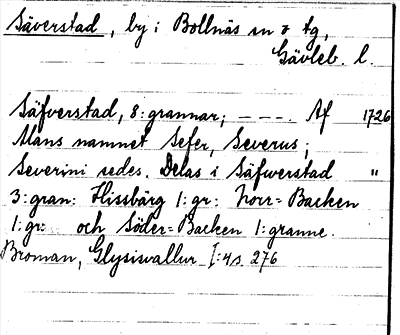 Säverstad, by i Bollnäs sn o tg,
Gävleb. l.
Säfverstad, 8: grannar; - - - . Af 1726
Mans namnet Sefer, Severus;
Severini sedes. Delas i Säfwerstad "
3: gran: Hissbärg 1: gr: Norr=Backen
1: gr: och Söder=Backen 1: granne.
Broman, Glysisvallur I: 4 s. 276